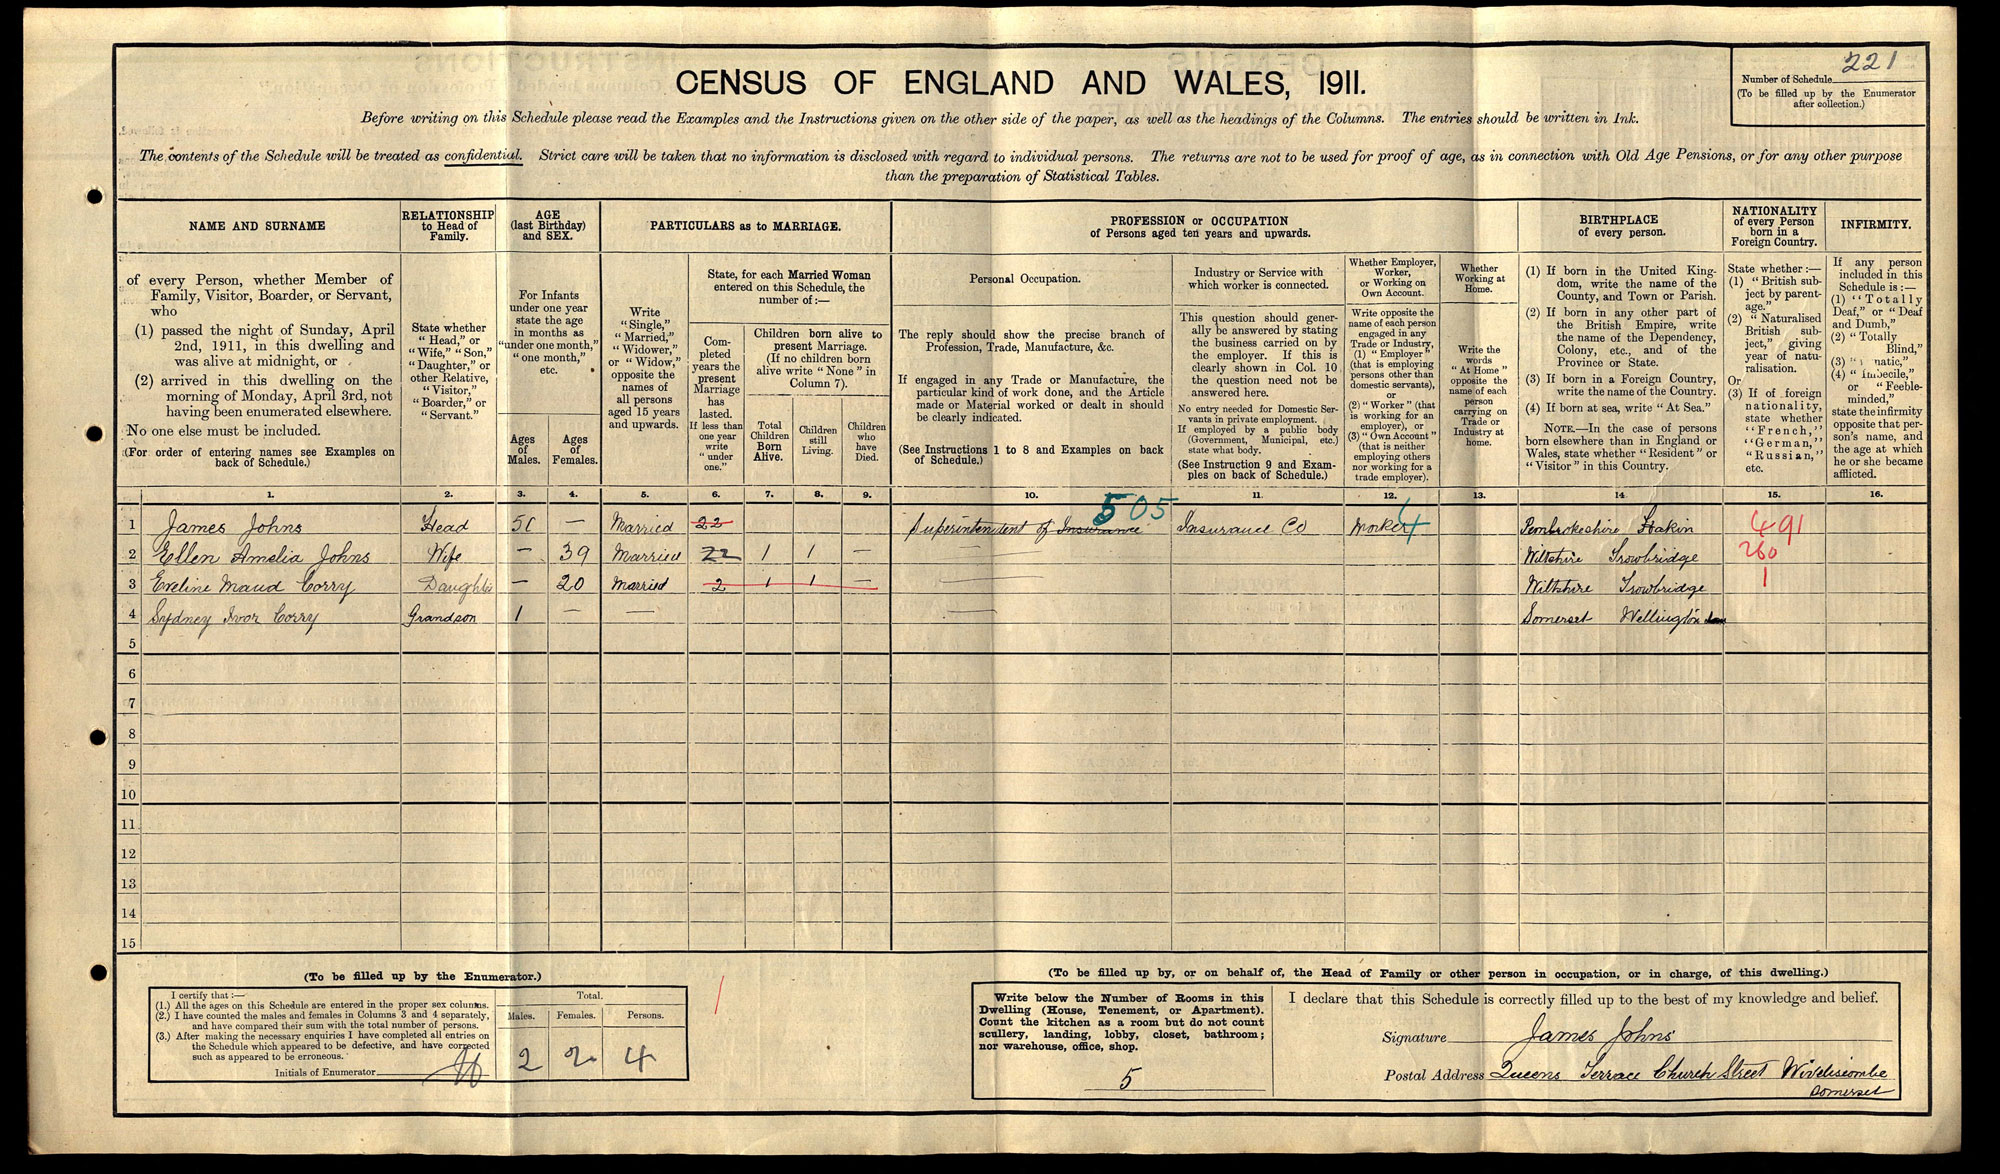 CENSUS OF ENGLAND AND WALES, 1911.
Number of Schedule 221
(To be filled up by the Enumerator
after collection.)
Before writing on this Schedule please read the Examples and the Instructions given on the other side of the paper, as well as the headings of the Columns. The entries should be written in Ink.
The contents of the Schedule will be treated as confidential. Strict care will be taken that no information is disclosed with regard to individual persons. The returns are not to be used for proof of age, as in connection with Old Age Pensions, or for any other purpose
than the preparation of Statistical Tables.
NAME AND SURNAME
of every Person, whether Member of
Family, Visitor, Boarder, or Servant,
who
(1) passed the night of Sunday, April
2nd, 1911, in this dwelling and
was alive at midnight, or
(2) arrived in this dwelling on the
morning of Monday, April 3rd, not
having been enumerated elsewhere.
No one else must be included.
(For order of entering names see Examples on
back of Schedule.)
RELATIONSHIP
to Head of
Family.
State whether
"Head," or
"Wife," "Son,"
"Daughter," or
other Relative,
"Visitor,"
"Boarder," or
"Servant."
AGE
(last Birthday)
and SEX.
For Infants
under one year
state the age
in months as
"under one month,"
"one month,"
etc.
Ages
of
Males.
Ages
of
Females.
PARTICULARS as to MARRIAGE.
Write
"Single,"
"Married,"
"Widower,"
or "Widow,"
opposite the
names of
all persons
aged 15 years
and upwards.
State, for each Married Woman
entered on this Schedule, the
number of:—
Com-
pleted
years the
present
Marriage
has
lasted.
If less than
one year
write
"under
one."
Children born alive to
present Marriage.
(If no children born
alive write "None" in
Column 7).
Total
Children
Born
Alive.
Children
still
Living.
Children
who
have
Died.
PROFESSION or OCCUPATION
of Persons aged ten years and upwards.
Personal Occupation.
The reply should show the precise branch of
Profession, Trade, Manufacture, &c.
If engaged in any Trade or Manufacture, the
particular kind of work done, and the Article
made or Material worked or dealt in should
be clearly indicated.
(See Instructions 1 to 8 and Examples on back
of Schedule.)
Industry or Service with
which worker is connected.
This question should gener-
ally be answered by stating
the business carried on by
the employer. If this is
clearly shown in Col. 10
the question need not be
answered here.
No entry needed for Domestic Ser-
vants in private employment.
If employed by a public body
(Government, Municipal, etc.)
state what body.
(See Instruction 9 and Exam-
ples on back of Schedule.)
Whether Employer,
Worker,
or Working on
Own Account.
Write opposite the
name of each person
engaged in any
Trade or Industry,
(1) "Employer"
(that is employing
persons other than
domestic servants),
or
(2) "Worker" (that
is working for an
employer), or
(3) "Own Account"
(that is neither
employing others
nor working for a
trade employer).
Whether
Working at
Home.
Write the
words
"At Home"
opposite the
name of each
person
carrying on
Trade or
Industry at
home.
BIRTHPLACE
of every person.
(1) If born in the United King-
dom, write the name of the
County, and Town or Parish.
(2) If born in any other part of
the British Empire, write
the name of the Dependency,
Colony, etc., and of the
Province or State.
(3) If born in a Foreign Country,
write the name of the Country.
(4) If born at sea, write "At Sea."
NOTE.—In the case of persons
born elsewhere than in England or
Wales, state whether "Resident" or
"Visitor" in this Country.
NATIONALITY
of every Person
born in a
Foreign Country.
State whether:—
(1) "British sub-
ject by parent-
age."
(2) "Naturalised
British sub-
ject," giving
year of natu-
ralisation.
Or
(3) If of foreign
nationality,
state whether
"French,"
"German,"
"Russian,"
etc.
INFIRMITY.
If any person
included in this
Schedule is:—
(1) "Totally
Deaf," or "Deaf
and Dumb,"
(2) "Totally
Blind,"
(3)
(4) "Imbecile,"
or "Feeble-
minded,"
state the infirmity
opposite that per-
son's name, and
the age at which
he or she became
afflicted.
1. 2. 3. 4. 5. 6. 7. 8. 9. 10. 11. 12. 13. 14. 15. 16.
505
1 James Johns Head 51 — Married 22 Superintendent of Insurance Insurance Co Worker 4 Pembrokeshire Hakin 491
2 Ellen Amelia Johns Wife — 39 Married 22 1 1 — — Wiltshire Trowbridge 260
3 Eveline Maud Corry Daughter — 20 Married 2 1 1 — — Wiltshire Trowbridge 1
4 Sydney Ivor Corry Grandson 1 — — — Somerset Wellington
5
6
7
8
9
10
11
12
13
14
15
(To be filled up by the Enumerator.)
I certify that:—
(1.) All the ages on this Schedule are entered in the proper sex columns.
(2.) I have counted the males and females in Columns 3 and 4 separately,
and have compared their sum with the total number of persons.
(3.) After making the necessary enquiries I have completed all entries on
the Schedule which appeared to be defective, and have corrected
such as appeared to be erroneous.
Initials of Enumerator
Total.
Males. Females. Persons.
2 2 4
(To be filled up by, or on behalf of, the Head of Family or other person in occupation, or in charge, of this dwelling.)
Write below the Number of Rooms in this
Dwelling (House, Tenement, or Apartment).
Count the kitchen as a room but do not count
scullery, landing, lobby, closet, bathroom;
nor warehouse, office, shop.
5
I declare that this Schedule is correctly filled up to the best of my knowledge and belief.
Signature James Johns
Postal Address Queens Terrace Church Street Wiveliscombe
Somerset